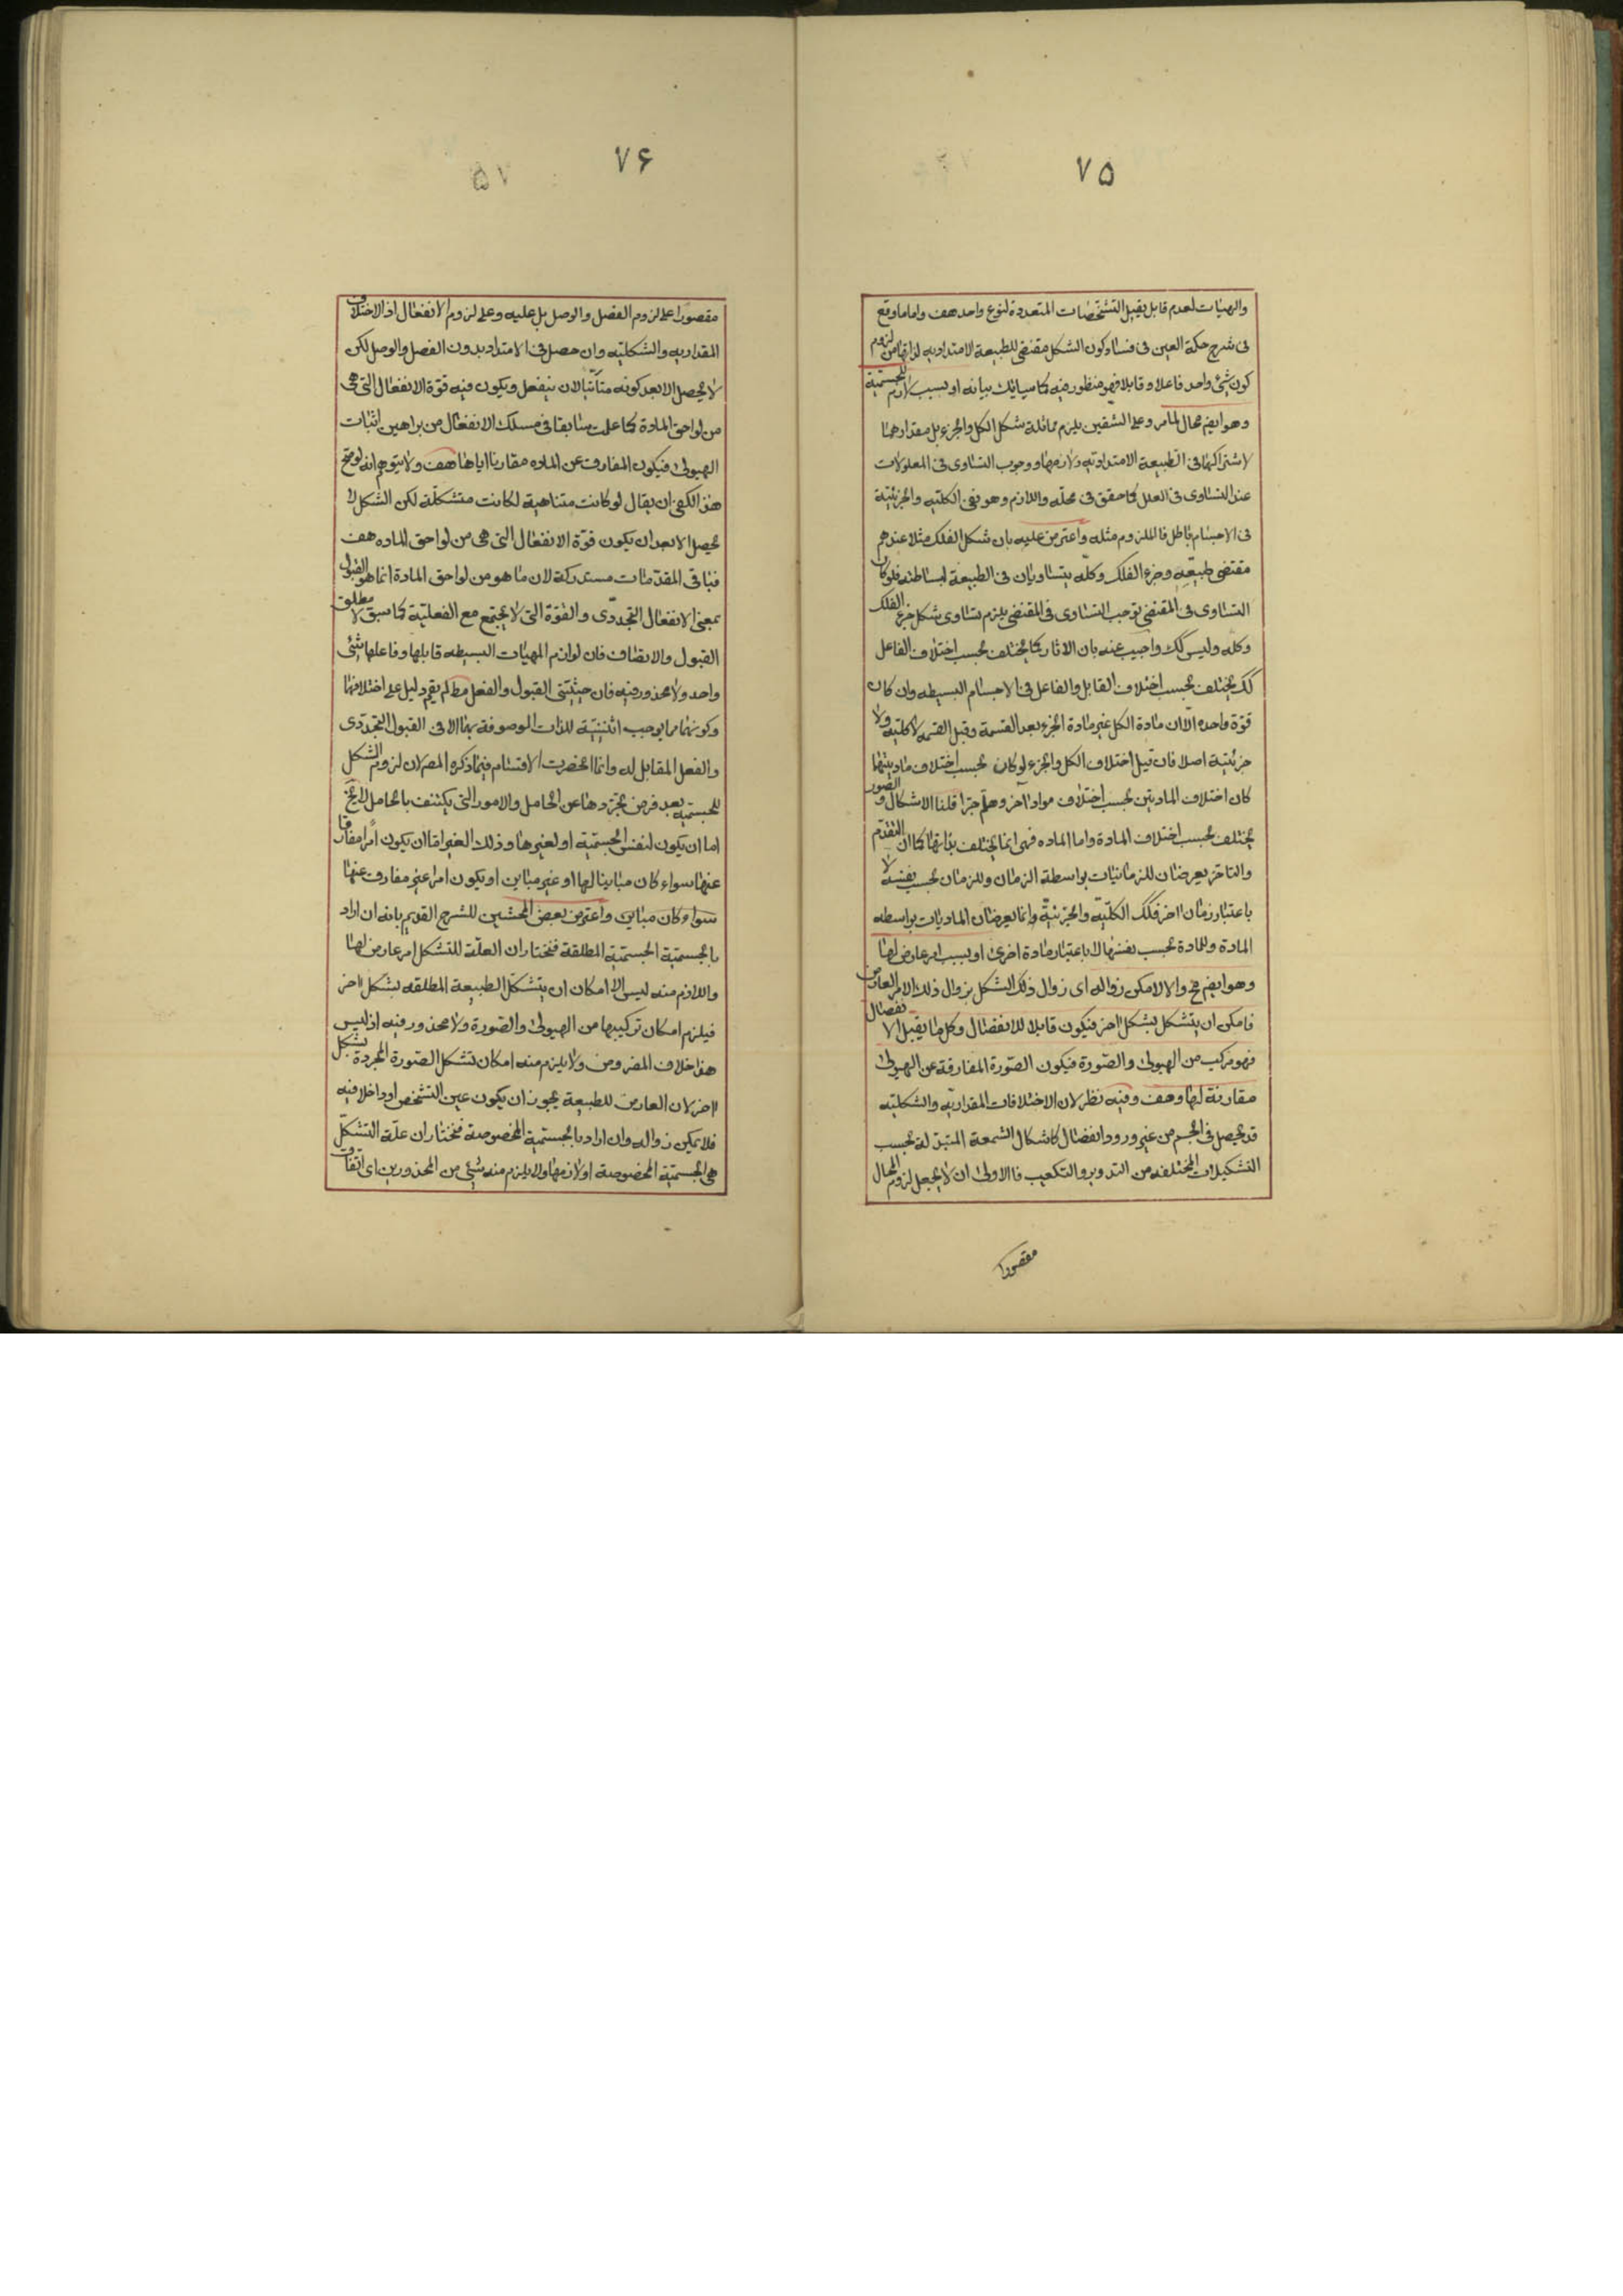 ۷۵
والهيئات لعدم قابل يقبل التشخصات المتعددة لنوع واحد هف واما ما وقع
فى شرح حكمة العين فى فساد كون الشكل مقتضى للطبيعة الامتدادية لذاتها من لزوم
كون شئ واحد فاعلا و قابلا فهو منظور فيه كما سيأتيك بيانه او بسبب لازم للجسمية
وهو ايضم محال لما مر و على الشقين يلزم مماثلة شكل الكل والجزء بل مقدارهما
لاشتراكهما فى الطبيعة الامتدادية ولازمها و وجوب التساوى فى المعلولات
عند التساوى فى العلل كما حقق فى محله واللازم وهو نفى الكلية والجزئية
فى الاجسام باطل فالملزوم مثله واعترض عليه بان شكل الفلك مثلا عندهم
مقتضى طبيعته وجزء الفلك وكله يتساويان فى الطبيعة لبساطته فلو كان
التساوى فى المقتضى توجب التساوى فى المقتضى يلزم تساوى شكل جزء الفلك
وكله وليس كك واجيب عنه بان الاثار كما يختلف بحسب اختلاف الفاعل
كك يختلف بحسب اختلاف القابل والفاعل فى الاجسام البسيطه وان كان
قوة واحده الا ان مادة الكل غير مادة الجزء بعد القسمة وقبل القسمه لا كلية ولا
جزئية اصلا فان قيل اختلاف الكل والجزء لو كان بحسب اختلاف ماديتهما
كان اختلاف المادتين بحسب اختلاف مواد اخر وهلم جرا قلنا الاشكال و الصور
يختلف بحسب اختلاف المادة واما الماده فهى انما يختلف بذاتها كما ان التقدم
والتاخر يعرضان للزمانيات بواسطة الزمان وللزمان بحسب نفسه لا
باعتبار زمان اخر فكك الكلية والجزئية وانما يعرضان الماديات بواسطه
المادة وللمادة بحسب نفسها لا باعتبار مادة اخرى او بسبب امر عارض لها
وهو ايضم مح والا لامكن زواله اى زوال ذلك الشكل بزوال ذلك الامر العارض
فامكن ان يتشكل بشكل اخر فيكون قابلا للانفصال وكل ما يقبل الانفصال
فهو مركب من الهيولى والصورة فيكون الصورة المفارقة عن الهيولى
مقارنة لها و هف وفيه نظر لان الاختلافات المقدارية والشكلية
قد يحصل فى الجسم من غير ورود انفصال كاشكال الشمعة المتبدلة بحسب
التشكيلات المختلفه من التدوير والتكعيب فالاولى ان لا يجعل لزوم المحال
مقصورا
۷۶
۵۷
مقصورا على لزوم الفصل والوصل بل عليه وعلى لزوم الانفعال اذ الاختلاف
المقداريه والشكليه وان حصل فى الامتداد بدون الفصل والوصل لكن
لا يحصل الا بعد كونه متأتيا لان ينفعل ويكون فيه قوة الانفعال التى هى
من لواحق المادة كما علمت سابقا فى مسلك الانفعال من براهين اثبات
الهيولى فيكون المفارق عن الماده مقارنا اياها هف ولا يتوهم انه لو صح
هذا لكفى ان يقال لو كانت متناهية لكانت متشكلة لكن الشكل لا
يحصل الا بعد ان يكون قوة الانفعال التى هى من لواحق الماده هف
فباقى المقدمات مستدركة لان ما هو من لواحق المادة انما هو القبول
بمعنى الانفعال التجددى والقوة التى لا يجتمع مع الفعلية كما سبق لا مطلق
القبول والاتصاف فان لوازم المهيات البسيطه قابلها وفاعلها شئ
واحد ولا محذور فيه فان حيثيتى القبول والفعل مط لم يقم دليل على اختلافهما
وكونهما مما يوجب اثنينية للذات الموصوفة بهما الا فى القبول التجددى
والفعل المقابل له وانما انحصرت الاقسام فيما ذكره المصر لان لزوم الشكل
للجسمية بعد فرض تجردها عن الحامل والامور التى يكتنف بالحامل لا يخ
اما ان يكون لنفس الجسمية او لغيرها وذلك الغير اما ان يكون امرا مفارقا
عنها سواء كان مباينا لها او غير مباين او يكون امرا غير مفارق عنها
سواء كان مباين واعترض بعض المحشين للشرح القديم بانه ان اراد
بالجسمية الجسمية المطلقة فنختار ان العلة للتشكل امر عارض لها
واللازم منه ليس الا امكان ان يتشكل الطبيعة المطلقه بشكل اخر
فيلزم امكان تركيبها من الهيولى والصورة ولا محذور فيه اذ ليس
هذا خلاف المفروض ولا يلزم منه امكان تشكل الصورة المجردة بشكل
اخر لان العارض للطبيعة يجوز ان يكون عين التشخص او داخلا فيه
فلا يمكن زواله وان اراد بالجسمية المخصوصة فنختار ان علة التشكل
هى الجسمية المخصوصة او لازمها ولا يلزم منه شئ من المحذورين اى اتفاق